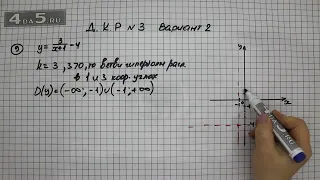 4DA5.RU
Д.К.Р №3 Вариант 2
⑨ y = 3/(x+1) - 4
k = 3, 3>0, то ветви гиперболы рас.
в 1 и 3 коор. углах
D(y) = (-∞; -1) ∪ (-1; +∞)
y
x
-1
-4